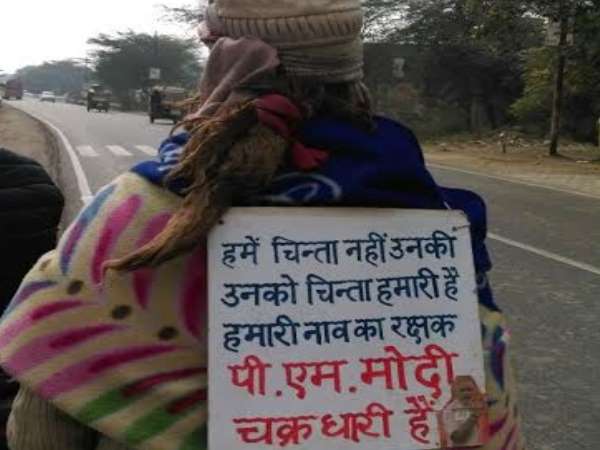 हमें चिन्ता नहीं उनकी
उनको चिन्ता हमारी है
हमारी नाव का रक्षक
पी.एम.मोदी
चक्रधारी हैं